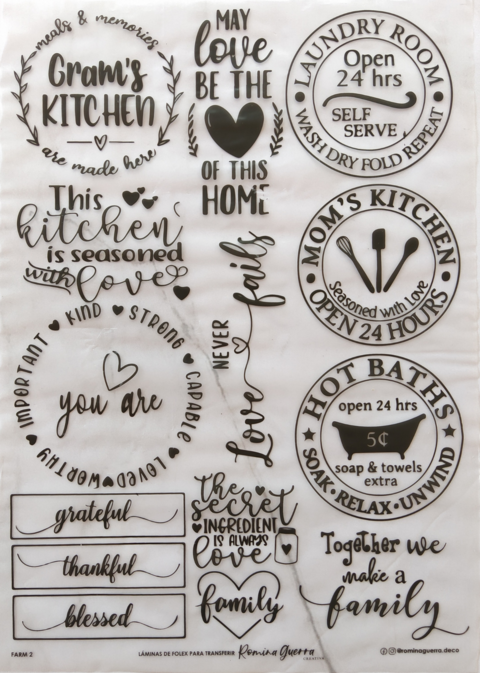 meals & memories
Gram's
KITCHEN
are made here
MAY
love
BE THE
OF THIS
HOME
LAUNDRY ROOM
Open
24 hrs
SELF
SERVE
WASH DRY FOLD REPEAT
This
kitchen
is seasoned
with love
MOM'S KITCHEN
Seasoned with Love
OPEN 24 HOURS
Love NEVER fails
KIND STRONG CAPABLE LOVED WORTHY IMPORTANT
you are
HOT BATHS
open 24 hrs
5¢
soap & towels
extra
SOAK • RELAX • UNWIND
grateful
thankful
blessed
the
secret
INGREDIENT
IS ALWAYS
love
family
Together we
make a
family
FARM 2
LÁMINAS DE FOLEX PARA TRANSFERIR Romina Guerra
@rominaguerra.deco